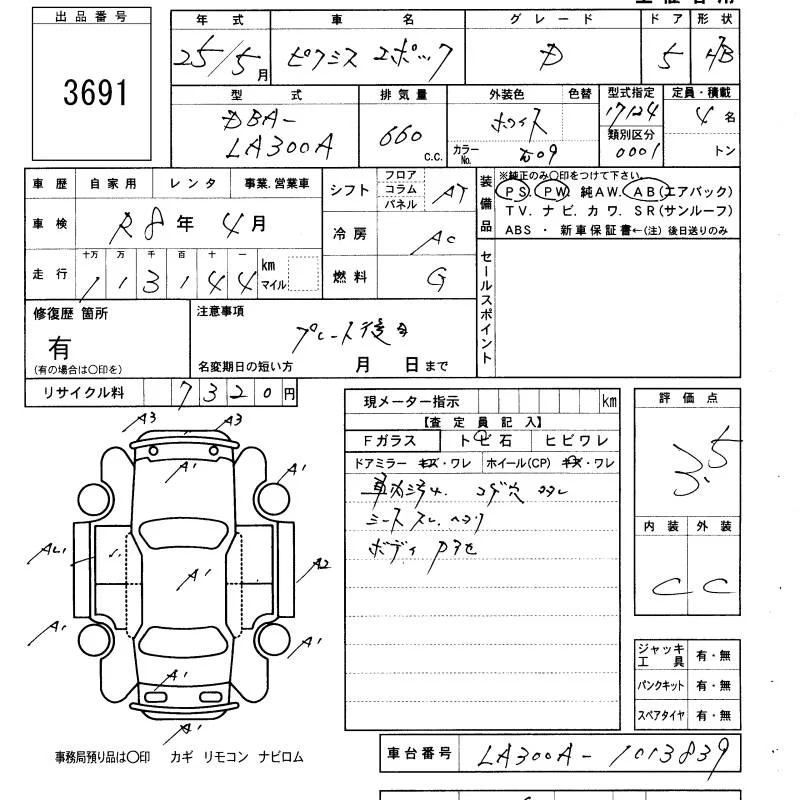 出品番号
3691
年式 車名 グレード ドア 形状
25/5月 ピクシス エポック D 5 HB
型式 排気量 外装色 色替 型式指定 定員・積載
DBA-LA300A 660 c.c. ホワイト カラーNo. W09 17124 4名
類別区分 0001 トン
車歴 自家用 レンタ 事業.営業車
車検 R8年 4月
走行 十万 万 千 百 十 一 km マイル
113144
シフト フロア コラム パネル AT
冷房 AC
燃料 G
装備品
※純正のみ〇印をつけて下さい。
PS. PW. 純AW. AB(エアバック)
TV. ナビ. カワ. SR(サンルーフ)
ABS ・ 新車保証書←(注) 後日送りのみ
セールスポイント
修復歴 箇所
有
(有の場合は〇印を)
注意事項
プレート後日
名変期日の短い方 月 日まで
リサイクル料 7320円
現メーター指示 km
【査定員記入】
Fガラス トビ石 ヒビワレ
ドアミラー キズ・ワレ ホイール(CP) キズ・ワレ
コゲ穴
ボディ
評価点
3.5
内装 外装
C C
ジャッキ工具 有・無
パンクキット 有・無
スペアタイヤ 有・無
A3 A3
A1 A1 A1
A1 A2
A1 A1 A1
A1
A1
事務局預り品は〇印 カギ リモコン ナビロム
車台番号 LA300A-1013839